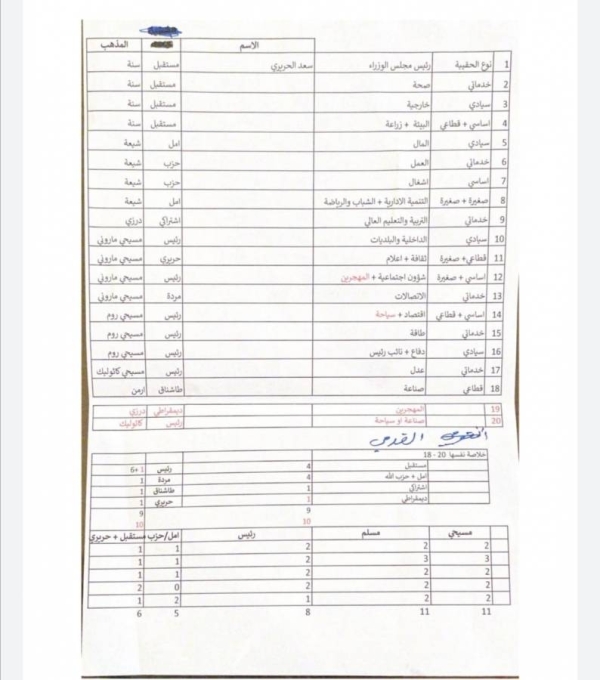 الاسم المذهب
1 نوع الحقيبة رئيس مجلس الوزراء سعد الحريري مستقبل سنة
2 خدماتي صحة مستقبل سنة
3 سيادي خارجية مستقبل سنة
4 اساسي + قطاعي البيئة + زراعة مستقبل سنة
5 سيادي المال امل شيعة
6 خدماتي العمل حزب شيعة
7 اساسي اشغال حزب شيعة
8 صغيرة + صغيرة التنمية الادارية + الشباب والرياضة امل شيعة
9 خدماتي التربية والتعليم العالي اشتراكي درزي
10 سيادي الداخلية والبلديات رئيس مسيحي ماروني
11 قطاعي+ صغيرة ثقافة + اعلام حريري مسيحي ماروني
12 اساسي + صغيرة شؤون اجتماعية + المهجرين رئيس مسيحي ماروني
13 خدماتي الاتصالات مردة مسيحي ماروني
14 اساسي + قطاعي اقتصاد + سياحة رئيس مسيحي روم
15 خدماتي طاقة رئيس مسيحي روم
16 سيادي دفاع + نائب رئيس رئيس مسيحي روم
17 خدماتي عدل رئيس مسيحي كاثوليك
18 قطاعي صناعة طاشناق ارمن
19 المهجرين ديمقراطي درزي
20 صناعة او سياحة رئيس كاثوليك
القدمي
خلاصة نفسها 20 - 18
مستقبل 4 رئيس 1 +6
امل + حزب الله 4 مردة 1
اشتراكي 1 طاشناق 1
ديمقراطي 1 حريري 1
9 9
10 10
مسيحي مسلم رئيس امل/حزب مستقبل + حريري
2 2 2 1 1
3 3 2 1 1
2 2 2 1 1
2 2 2 0 2
2 2 1 2 1
11 11 8 5 6